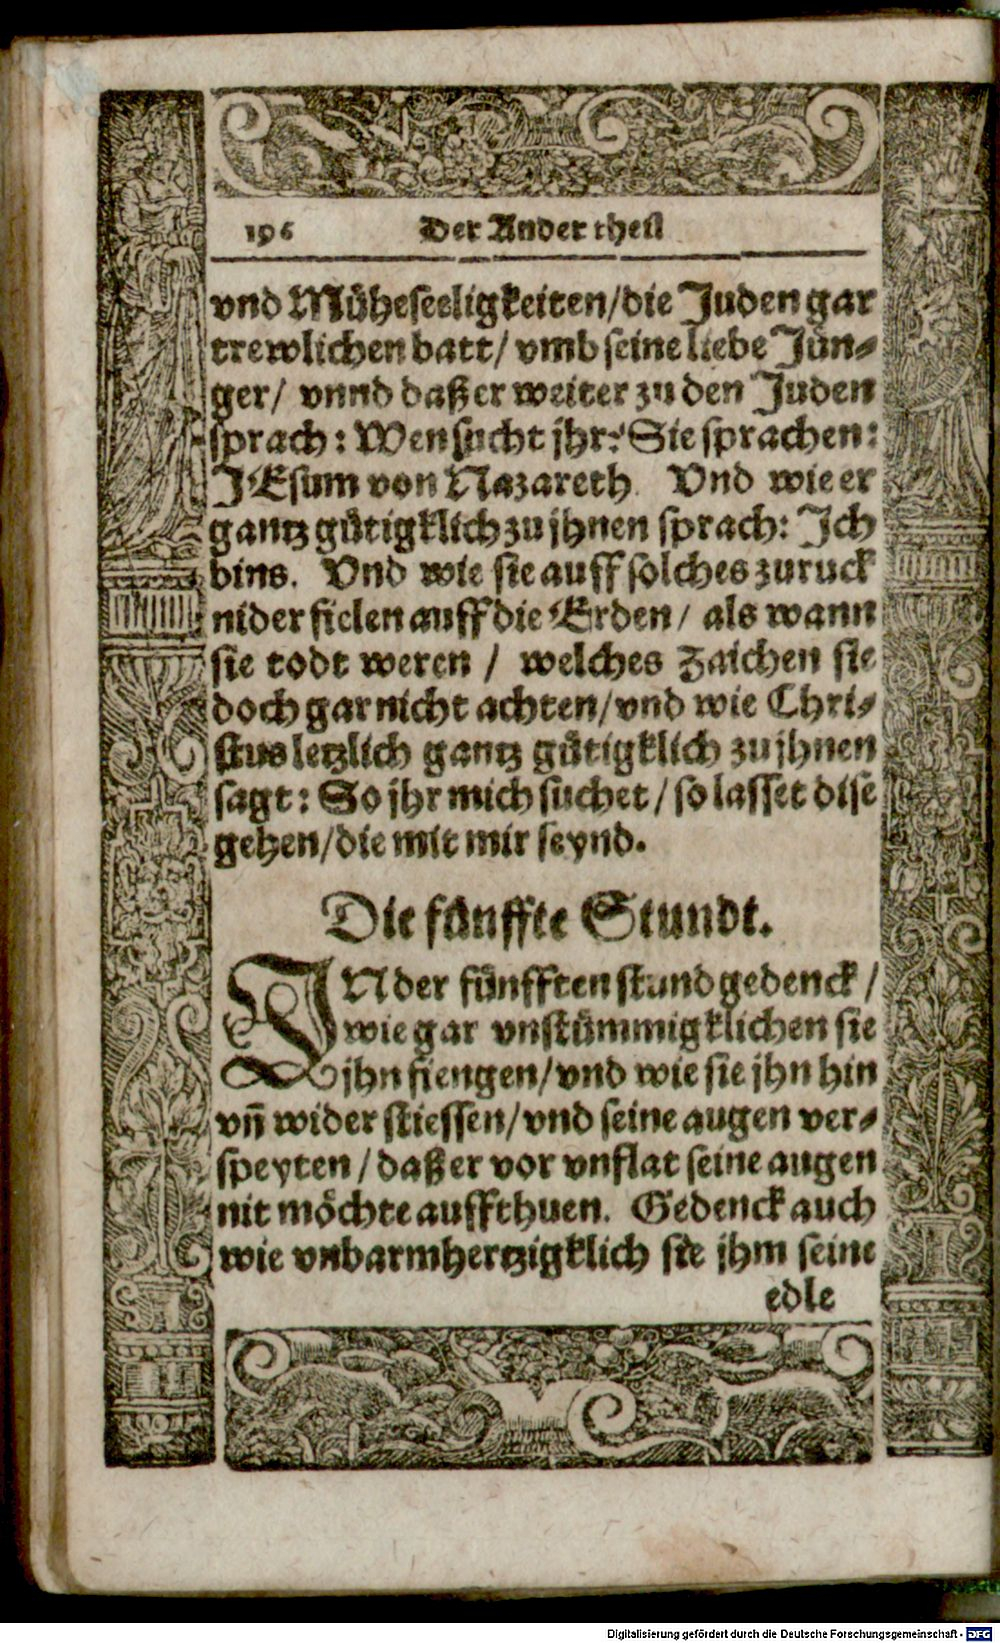 196 Der Ander theil
vnd Müheseeligkeiten/die Juden gar
trewlichen batt/ vmb seine liebe Jün⸗
ger/ vnnd daß er weiter zu den Juden
sprach: Wen sucht jhr? Sie sprachen:
JEsum von Nazareth. Vnd wie er
gantz gütigklich zu jhnen sprach: Ich
bins. Vnd wie sie auff solches zuruck
nider fielen auff die Erden/ als wann
sie todt weren / welches Zaichen sie
doch gar nicht achten/vnd wie Chri⸗
stus letzlich gantz gütigklich zu jhnen
sagt: So jhr mich suchet / so lasset dise
gehen/die mit mir seynd.
Die fünffte Stundt.
IN der fünfften stund gedenck /
wie gar vnstümmigklichen sie
jhn fiengen/vnd wie sie jhn hin
vn̄ wider stiessen/vnd seine augen ver⸗
speyten / daß er vor vnflat seine augen
nit möchte auffthuen. Gedenck auch
wie vnbarmhertzigklich sie jhm seine
edle
Digitalisierung gefördert durch die Deutsche Forschungsgemeinschaft - DFG